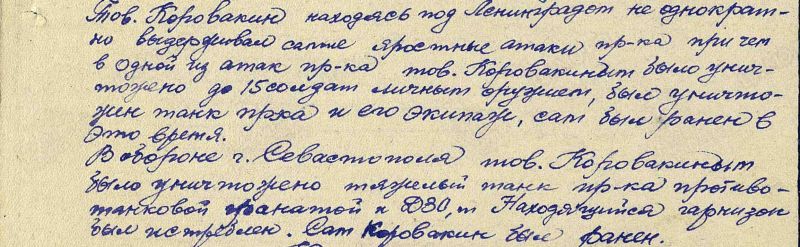 Тов. Коровакин находясь под Ленинградом не однократ-
но выдерживал самые яростные атаки пр-ка при чем
в одной из атак пр-ка тов. Коровакиным было унич-
тожено до 15 солдат личным оружием, был уничто-
жен танк пр-ка и его экипаж, сам был ранен в
это время.
В обороне г. Севастополя тов. Коровакиным
было уничтожено тяжелый танк пр-ка противо-
танковой гранатой и ДЗО, Находящийся гарнизон
был истреблен. Сам Коровакин был ранен.